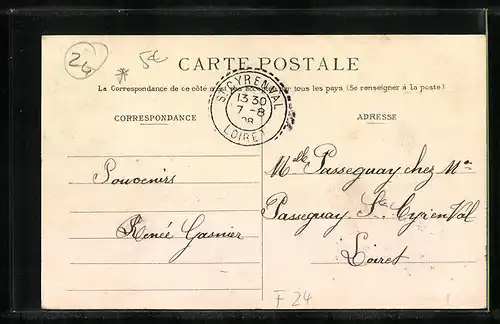 24
5€
*
CARTE POSTALE
La Correspondance de ce côté n'est pas acceptée par tous les pays (Se renseigner à la poste)
ST CYR EN VAL
13 30
7 - 8
08
LOIRET
CORRESPONDANCE
ADRESSE
Souvenirs
Renée Gasnier
Mlle Passeguay chez Mr
Passeguay St Cyr en Val
Loiret
F 24